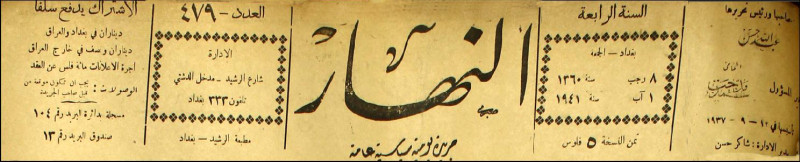 صاحبها ورئيس تحريرها
عبدالله حسن
المسؤول
٩ - ١٩٣٧
الادارة : شاكر حسن
السنة الرابعة
بغداد - الجمعة
٨ رجب سنة ١٣٦٠
١ آب سنة ١٩٤١
ثمن النسخة ٥ فلوس
النهار
جريدة يومية سياسية عامة
العدد - ٤٧٩
الادارة
شارع الرشيد - مدخل الدشتي
تلفون ٣٣٣ بغداد
مطبعة الرشيد - بغداد
الاشتراك يدفع سلفا
ديناران في بغداد والعراق
ديناران ونصف في خارج العراق
اجرة الاعلانات مائة فلس عن العقد
الوصولات : يجب ان تكون موقعة من قبل صاحب الجريدة
مسجلة بدائرة البريد رقم ١٠٤
صندوق البريد رقم ١٣